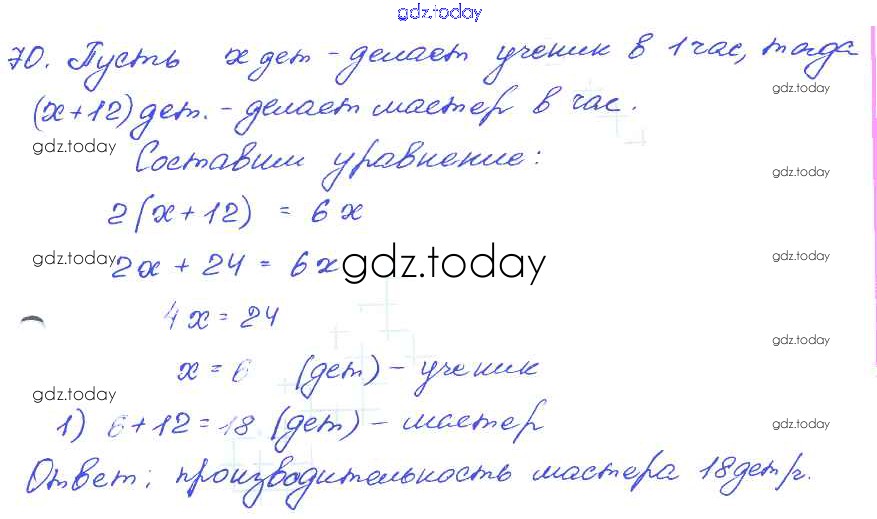 gdz.today
70. Пусть x дет - делает ученик в 1 час, тогда
gdz.today
(x+12) дет. - делает мастер в час.
gdz.today
Составим уравнение:
gdz.today
2(x+12) = 6x
gdz.today
2x + 24 = 6x
gdz.today
gdz.today
4x = 24
gdz.today
x = 6 (дет) - ученик
gdz.today
1) 6+12=18 (дет) - мастер
gdz.today
Ответ: производительность мастера 18 дет/ч.